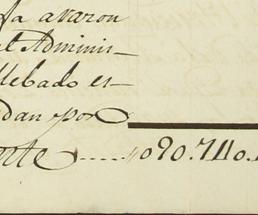 fa avaron
el Adminis-
llebado es-
dan por
ente ..... 090.740.